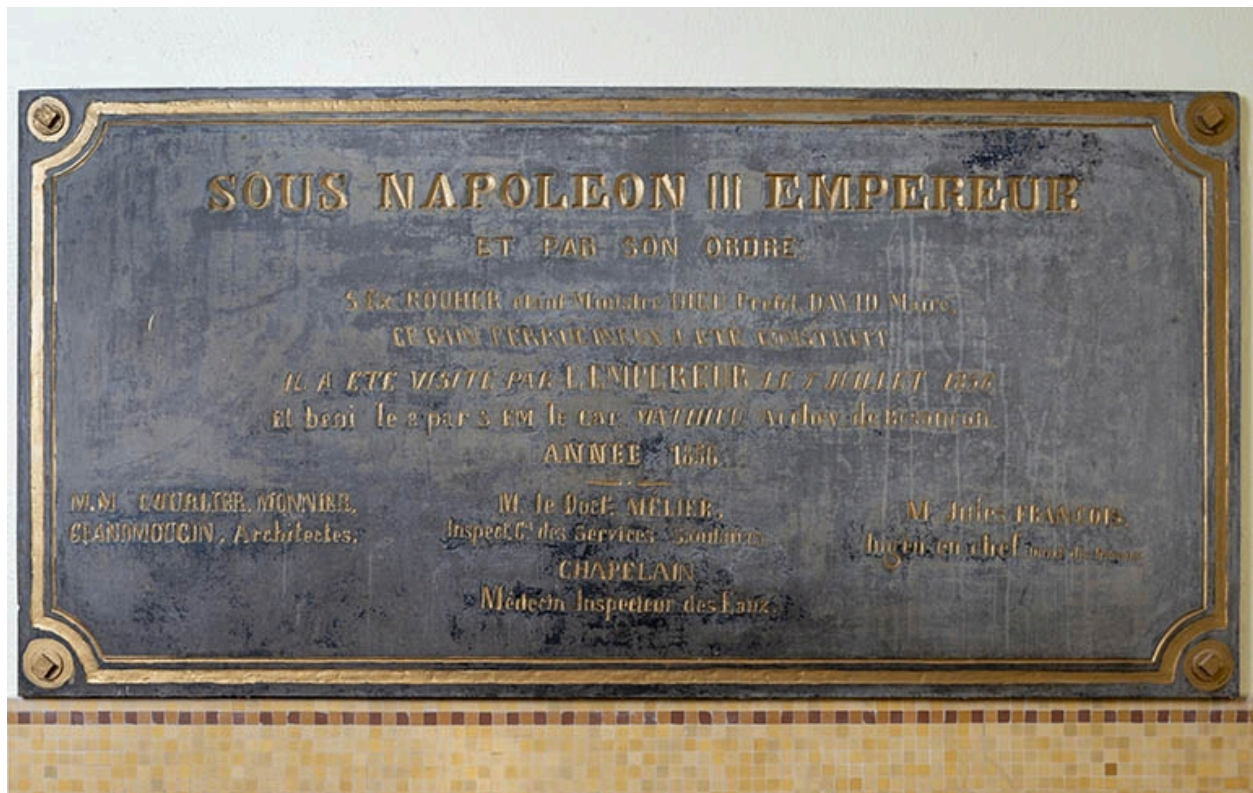 SOUS NAPOLEON III EMPEREUR
ET PAR SON ORDRE
S Ex. ROUHER étant Ministre DIEU Préfet, DAVID Maire,
CE BAIN FERRUGINEUX A ETE CONSTRUIT
IL A ETE VISITÉ PAR L'EMPEREUR LE 7 JUILLET 1856
Et béni le 8 par S EM le Car MATHIEU Archev. de Besançon
ANNEE 1856
M.M. COURLIER, MONNIER,
GRANDMOUGIN, Architectes.
M. le Doct. MÊLIER,
Inspect. Gl des Services Sanitaires
CHAPELAIN
Médecin Inspecteur des Eaux.
M Jules FRANCOIS,
Ingén. en chef